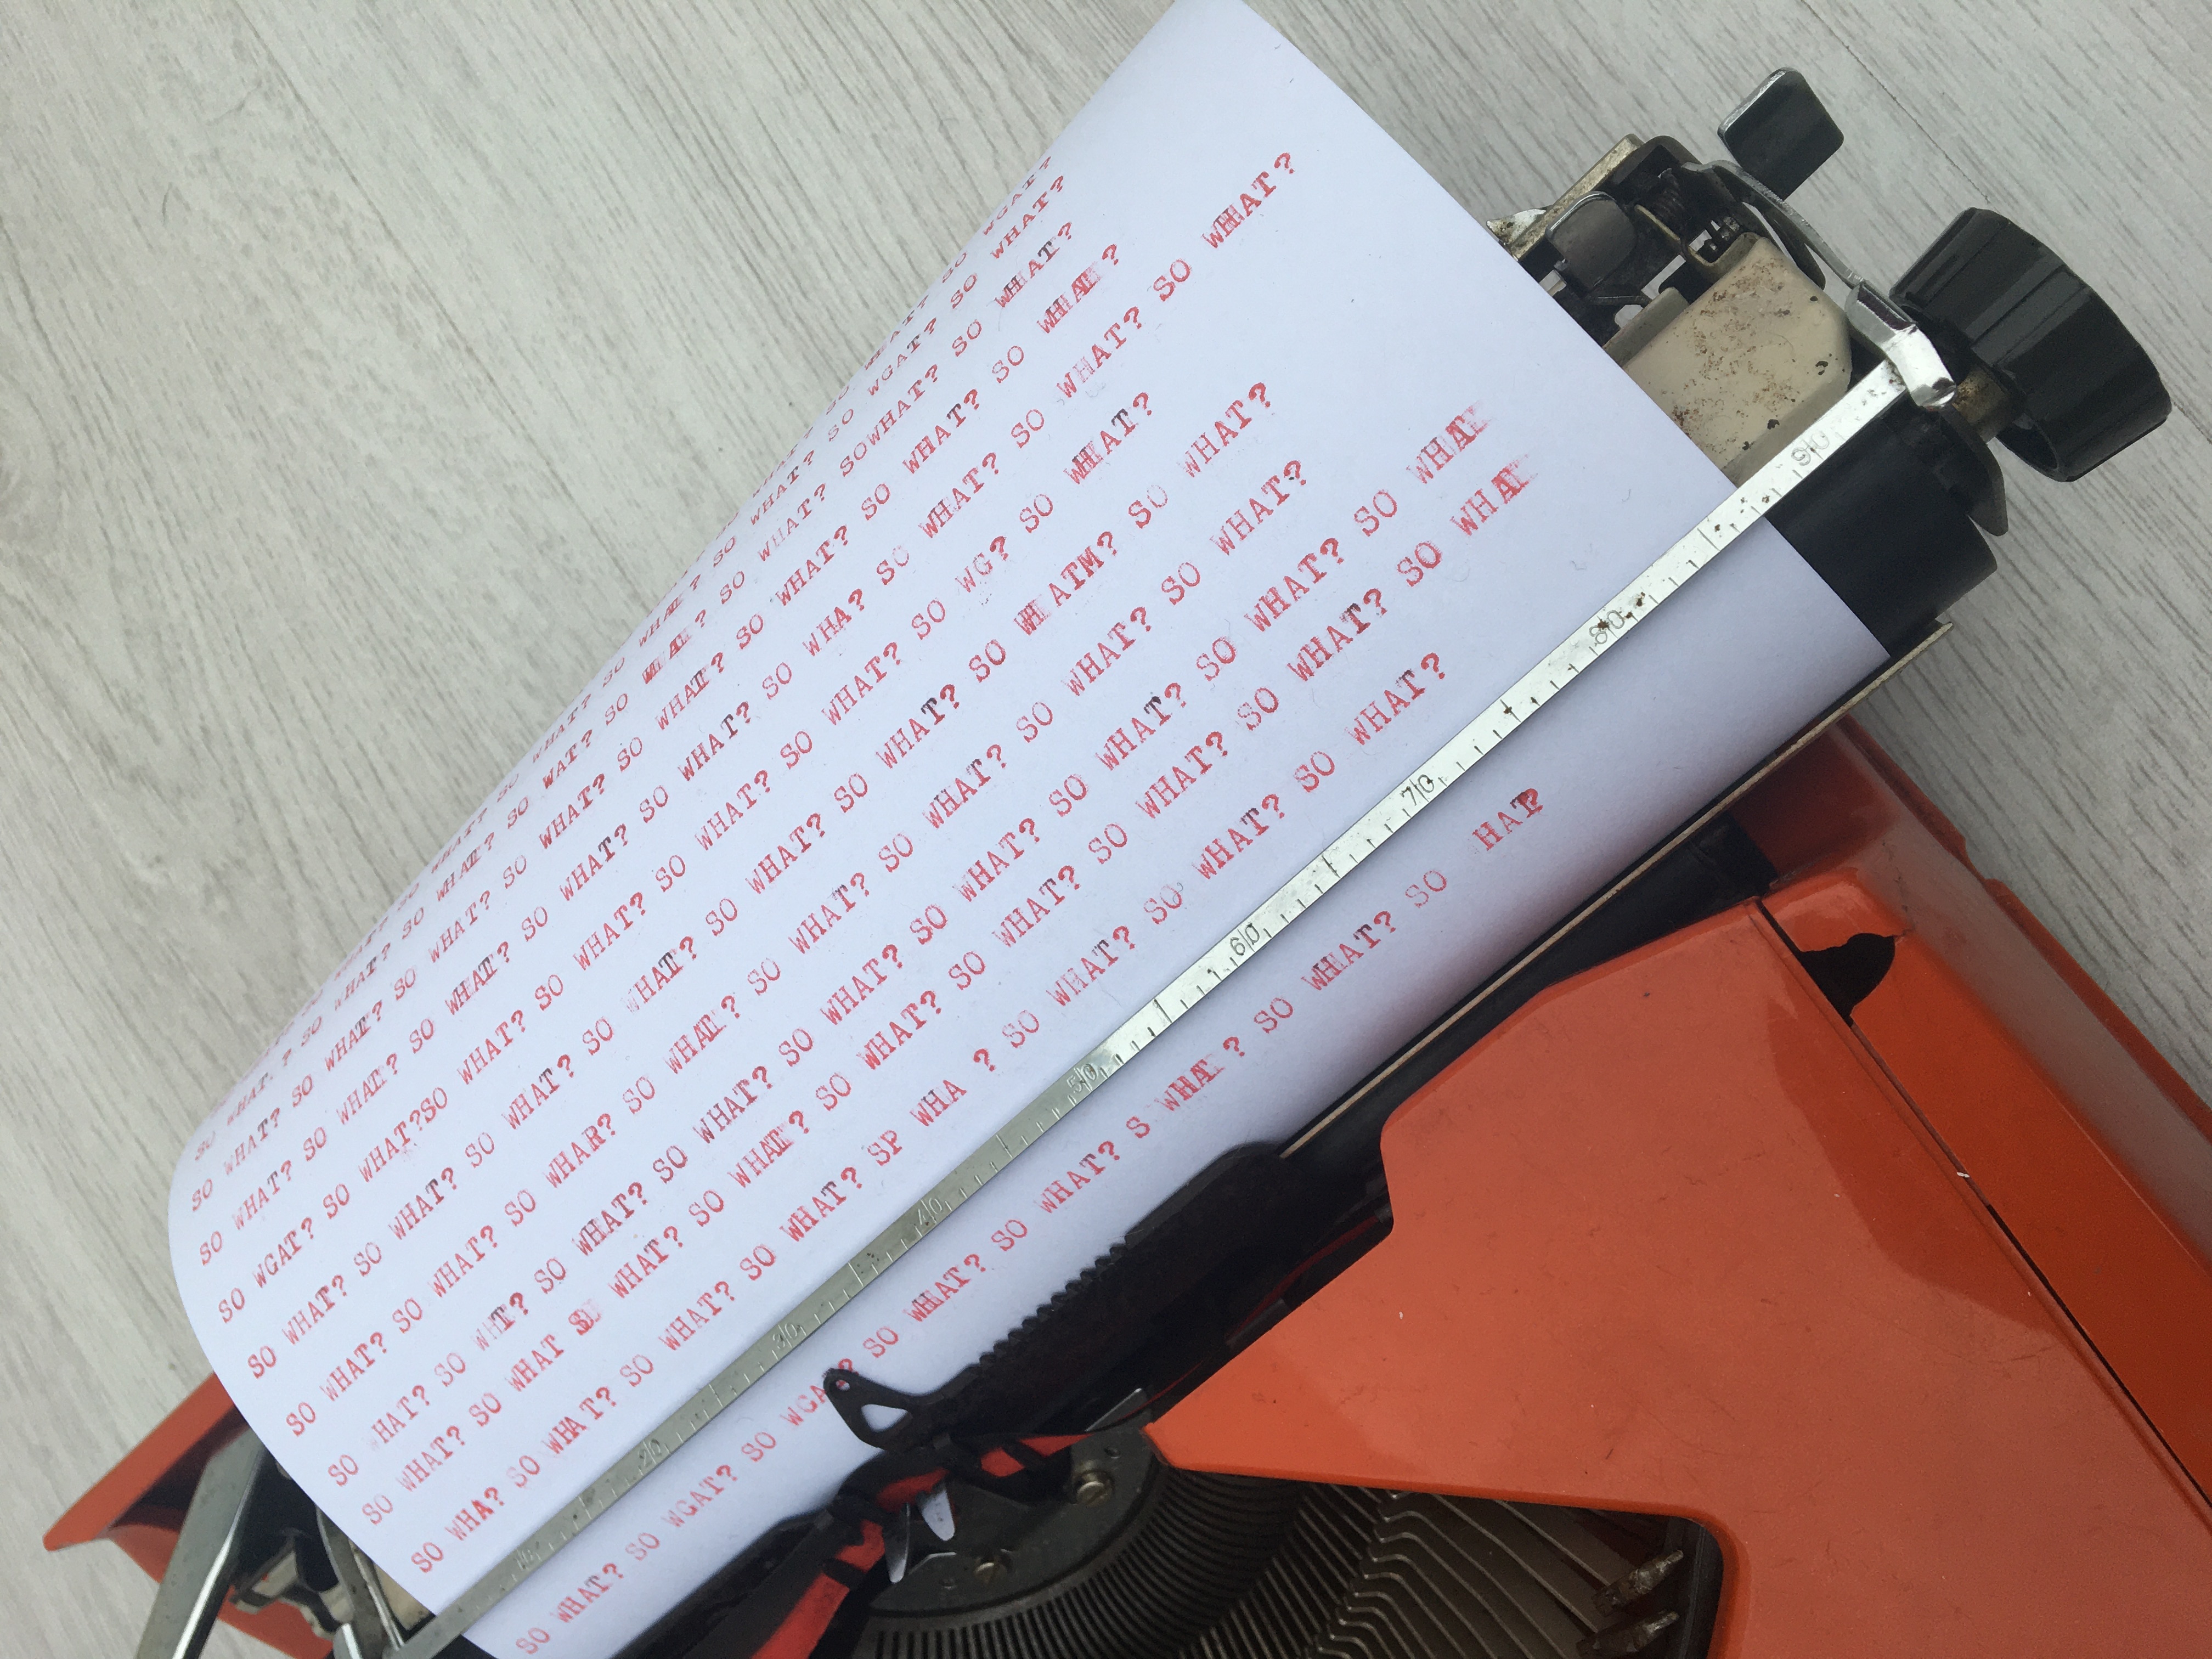 SO WHAT? SO WHAT? SO WHAT? SO WHAT? SO WGAT? SO WHAT?
SO WHAT? SO WHAT? SO WHAT? SO WAT? SO WHAT? SO WHAT? SOWHAT? SO WHAT?
SO WHAT? SO WHAT? SO WHAT? SO WHAT? SO WHAT? SO WHAT? SO WHAT? SO WHAT?
SO WHAT? SO WHAT? SO WHAT? SO WHAT? SO WHAT? SO WHA? SO WHAT? SO WHAT? SO WHAT?
SO WGAT? SO WHAT?SO WHAT? SO WHAT? SO WHAT? SO WHAT? SO WG? SO WHAT?
SO WHAT? SO WHAT? SO WHAT? SO WHAT? SO WHAT? SO WHAT? SO WHATM? SO WHAT?
SO WHAT? SO WHAT? SO WHAR? SO WHAT? SO WHAT? SO WHAT? SO WHAT? SO WHAT?
SO HAT? SO WHT? SO WHAT? SO WHAT? SO WHAT? SO WHAT? SO WHAT? SO WHAT? SO WHAT
SO WHAT? SO WHAT SO WHAT? SO WHAT? SO WHAT? SO WHAT? SO WHAT? SO WHAT? SO WHAT
SO WHA? SO WHA T? SO WHAT? SO WHAT? SP WHA ? SO WHAT? SO WHAT? SO WHAT?
10 20 30 40 50 60 70 80 90
SO WHAT? SO WGAT? SO WGA ? SO WHAT? SO WHAT? S WHAT ? SO WHAT? SO HAT?